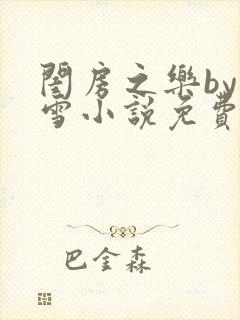 閨房之樂by
雪小說免費
巴金森